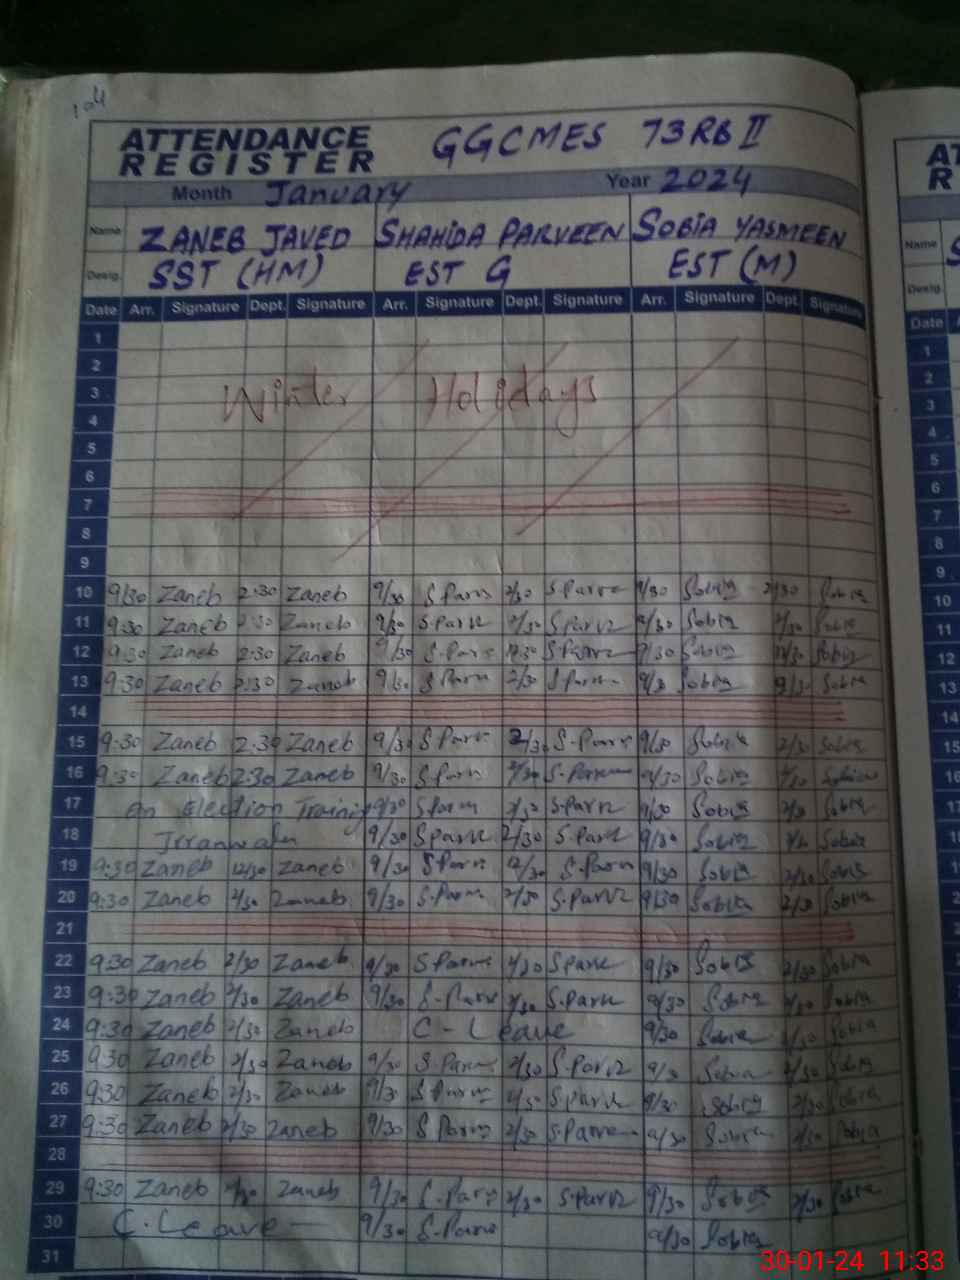 104
ATTENDANCE REGISTER GGCMES 73RB II
Month January Year 2024
Name ZANEB JAVED SHAHIDA PARVEEN SOBIA YASMEEN
Desig. SST (HM) EST G EST (M)
Date Arr. Signature Dept. Signature Arr. Signature Dept. Signature Arr. Signature Dept. Signature
1
2
3 Winter Holidays
4
5
6
7
8
9
10 9/30 Zaneb 2:30 Zaneb 9/30 S Parv 2/30 S.Parv 9/30 Sobia 2/30 Sobia
11 9:30 Zaneb 2:30 Zaneb 9/30 S.Parv 2/30 S.Parv 9/30 Sobia 2/30 Sobia
12 9:30 Zaneb 2:30 Zaneb 9/30 S.Parv S.Parv 9/30 Sobia Sobia
13 9:30 Zaneb 2:30 Zaneb 9/30 S Parv 2/30 S.Parv 9/30 Sobia Sobia
14
15 9:30 Zaneb 2:30 Zaneb 9/30 S Parv 2/30 S.Parv 9/30 Sobia 2/30 Sobia
16 9:30 Zaneb 2:30 Zaneb 9/30 S Parv 2/30 S.Parv 9/30 Sobia Sobia
17 on Election Training 9/30 S Parv 2/30 S.Parv 9/30 Sobia 2/30 Sobia
18 Jrranwala 9/30 S Parv 2/30 S.Parv 9/30 Sobia Sobia
19 9:30 Zaneb 12/30 Zaneb 9/30 S.Parv 12/30 S.Parv 9/30 Sobia Sobia
20 9:30 Zaneb 2/30 Zaneb 9/30 S.Parv 2/30 S.Parv 9/30 Sobia 2/30 Sobia
21
22 9:30 Zaneb 2/30 Zaneb 9/30 S Parv 2/30 S Parv 9/30 Sobia 2/30 Sobia
23 9:30 Zaneb 2/30 Zaneb 9/30 S.Parv 2/30 S.Parv 9/30 Sobia 2/30 Sobia
24 9:30 Zaneb 2/30 Zaneb C-Leave 9/30 Sobia 2/30 Sobia
25 9:30 Zaneb 2/30 Zaneb 9/30 S.Parv 2/30 S.Parv Sobia 2/30 Sobia
26 9:30 Zaneb 2/30 Zaneb 9/30 S Parv 2/30 S.Parv 9/30 Sobia 2/30 Sobia
27 9:30 Zaneb 2/30 Zaneb 9/30 S Parv 2/30 S.Parv 9/30 Sobia 2/30 Sobia
28
29 9:30 Zaneb 2/30 Zaneb 9/30 S.Parv 2/30 S.Parv 9/30 Sobia 2/30 Sobia
30 C.Leave 9/30 S.Parv 9/30 Sobia
31
Name
Desig.
Date
1
2
3
4
5
6
7
8
9
10
11
12
13
14
15
16
17
18
30-01-24 11:33